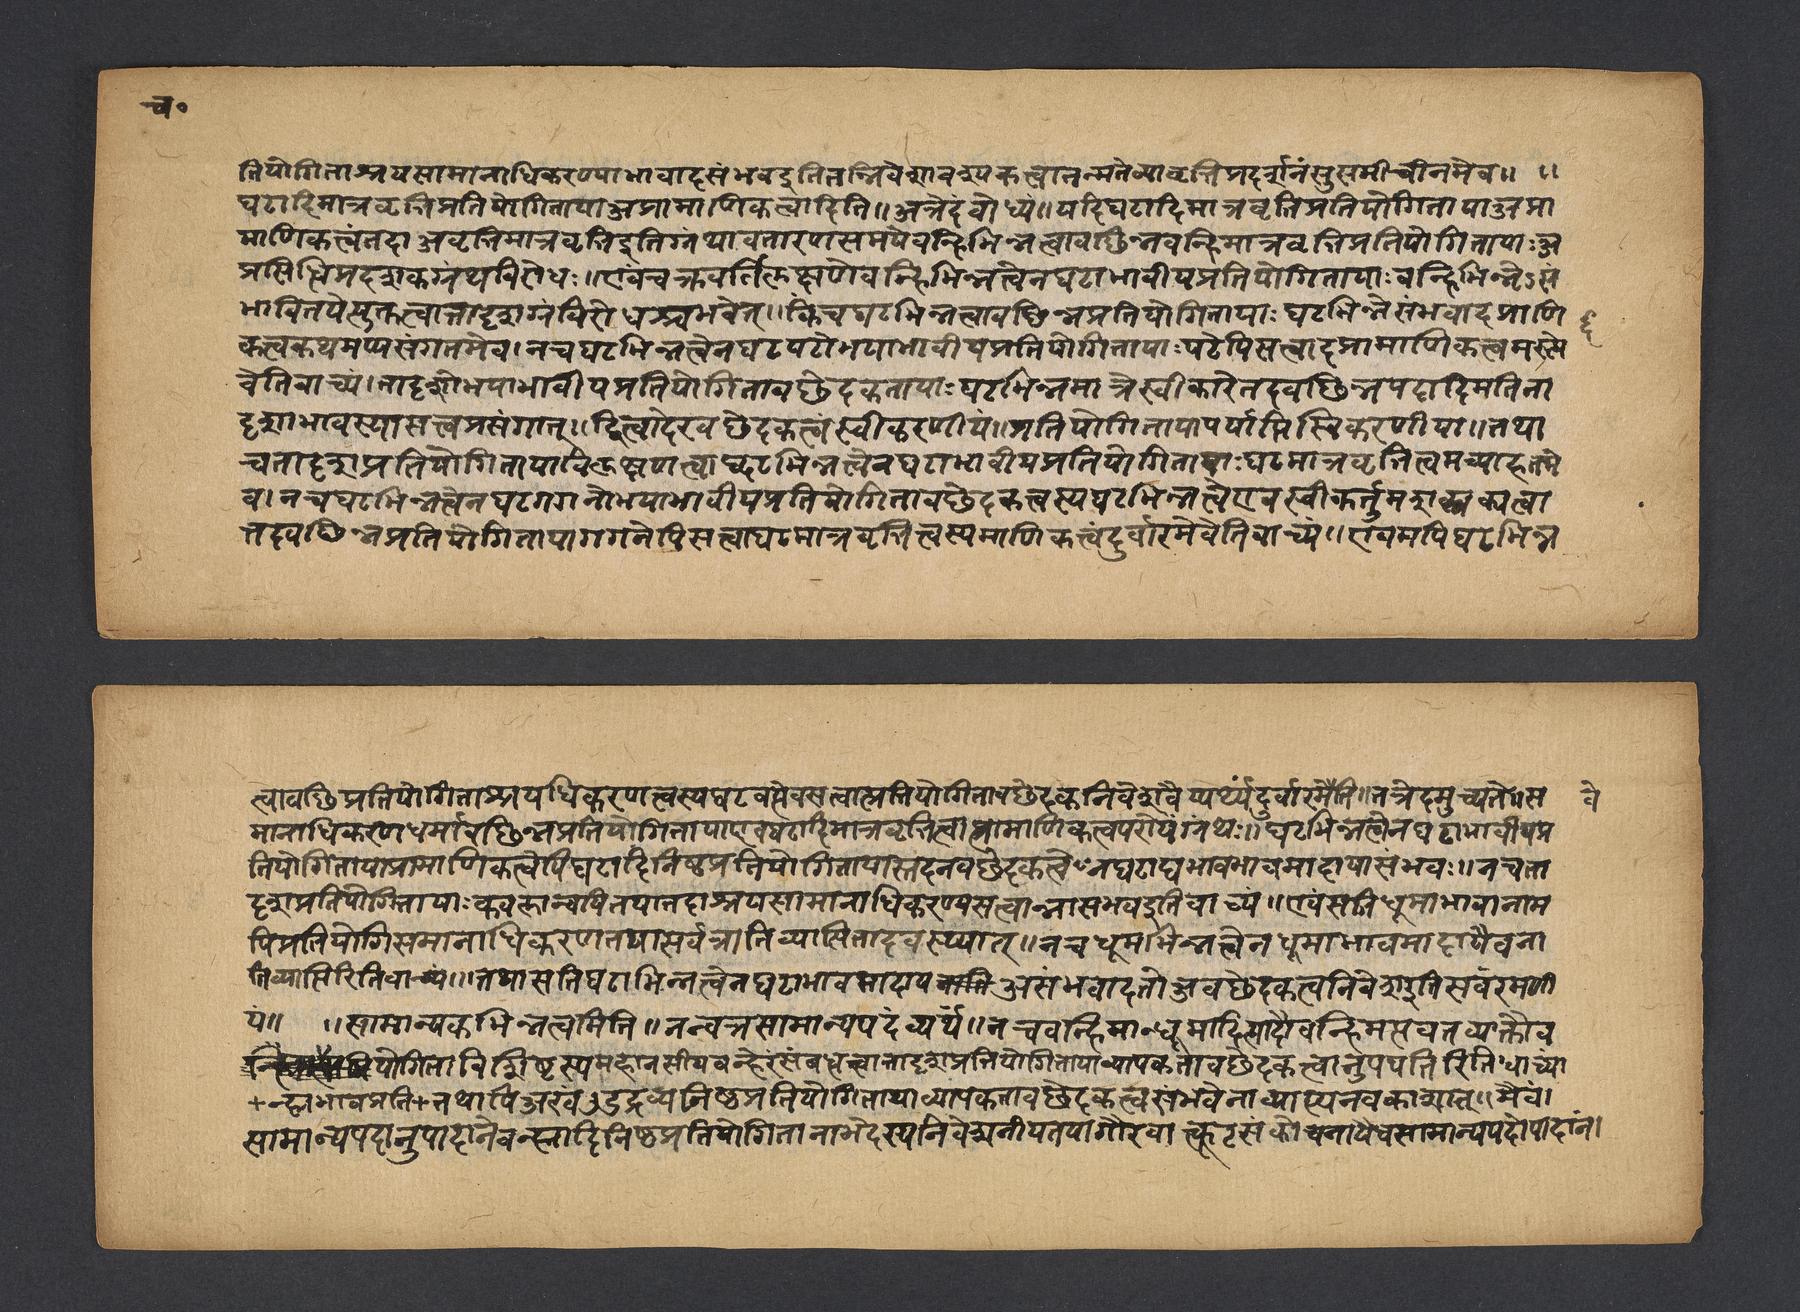 च०
तियोगिताश्रयसामानाधिकरण्याभावादसंभवइतितन्निवेशावश्यकत्वात्तन्मतेव्यावृत्तिप्रदर्शनंसुसमीचीनमेव॥ ॥
घटादिमात्रवृत्तिप्रतियोगितायाअप्रामाणिकत्वादिति॥अत्रेदंबोध्यं॥यदिघटादिमात्रवृत्तिप्रतियोगितायाअप्रा
माणिकत्वंतदाअवृत्तिमात्रवृत्तिइतिग्रंथावतारणसमयेवन्हिभिन्नत्वावछिन्नवन्हिमात्रवृत्तिप्रतियोगितायाःअ
प्रसिद्धिप्रदर्शकग्रंथविरोधः॥एवंचक्रवर्तिलक्षणेवन्हिभिन्नत्वेनघटाभावीयप्रतियोगितायाःवन्हिभिन्नेऽसं
भावितयेत्युक्तत्वात्तादृशग्रंविरोधश्चभवेत्॥किंचघटभिन्नत्वावछिन्नप्रतियोगितायाः घटभिन्नेसंभवादप्राणि
द
कत्वकथमप्यसंगतमेव।नचघटभिन्नत्वेनघटपटोभयाभावीयप्रतियोगितायाःपटेपिसत्वादप्रामाणिकत्वमस्त्ये
वेतिवाच्यं।तादृशोभयाभावीयप्रतियोगितावछेदकतायाःघटभिन्नमात्रेस्वीकारेतदवछिन्नपदादिमतिता
दृशाभावस्यासत्त्वप्रसंगात्॥द्वित्वादेरवछेदकत्वंस्वीकरणीयं॥प्रतियोगितायापर्याप्तिस्विकरणीया॥तथा
चतादृशप्रतियोगितायाविलक्षणत्वाद्घटभिन्नत्वेनघटाभावीयप्रतियोगितायाःघटमात्रवृत्तित्वमव्याहतमे
व।नचघटभिन्नत्वेनघटगगनोभयाभावीयप्रतियोगितावछेदकत्वस्यघटभिन्नत्वेएवस्वीकर्त्तुमशक्यत्वा
त्तदवछिन्नप्रतियोगितायागगनेपिसत्वाघटमात्रवृत्तित्वस्यमाणिकत्वंदुर्वारमेवेतिवाच्यं॥एवमपिघटभिन्न
त्वावछिप्रतियोगिताश्रयधिकरणत्वस्यघटवत्येवसत्वात्प्रतियोगितावछेदकनिवेशवैय्यर्थ्यंदुर्वारमेति॥तत्रेदमुच्यते॥स
वे
मानाधिकरणधर्मावछिन्नप्रतियोगितायाएवघटादिमात्रवृत्तित्वाप्रामाणिकत्वपरोयंग्रंथः॥घटभिन्नत्वेनघटाभावीयप्र
तियोगितायाप्रामाणिकत्वेपिघटादिनिष्ठप्रतियोगितायास्तदनवछेदकत्वेनघटाद्यभावमादायासंभवः॥नचता
दृशप्रतियोगितायाःक्वक्तान्वयितयातदाश्रयसामानाधिकरण्यसत्वान्नासंभवइतिवाच्यं॥एवंसतिधूमाभावानाम
पिप्रतियोगिसमानाधिकरणतयासर्वत्रातिव्याप्तितादवस्थ्यात्॥नचधूमभिन्नत्वेनधूमाभावमादायैवना
तिव्याप्तिरितिवाच्यं॥तथासतिघटाभिन्नत्वेनघटाभावमादायअसंभवादतोअवछेदकत्वनिवेशइतिसर्वंरमणी
यं॥ ॥सामान्यकभिन्नत्वमिति॥नन्वत्रसामान्यपदंव्यर्थं॥नचवन्हिमान्धूमादित्यादौवन्हिमत्तवतव्याक्तैव
योगिताविशिष्टस्यमहानसीयवन्हेरसंबधत्त्वात्तादृशप्रतियोगितायाव्यापकतावछेदकत्वानुपपत्तिरितिवाच्यां
+न्ह्यभावप्रति+तथापिअखंडउद्रव्यनिष्ठप्रतियोगितायाव्यापकतावछेदकत्वसंभवेनाव्याप्त्यनवकाशात्॥मैवं।
सामान्यपदानुपादानेवन्ह्यादिनिष्ठप्रतियोगितानाभेदस्यनिवेशनीयतयागौरवात्कूटसंकोचनायेवसामान्यपदोपादानं।